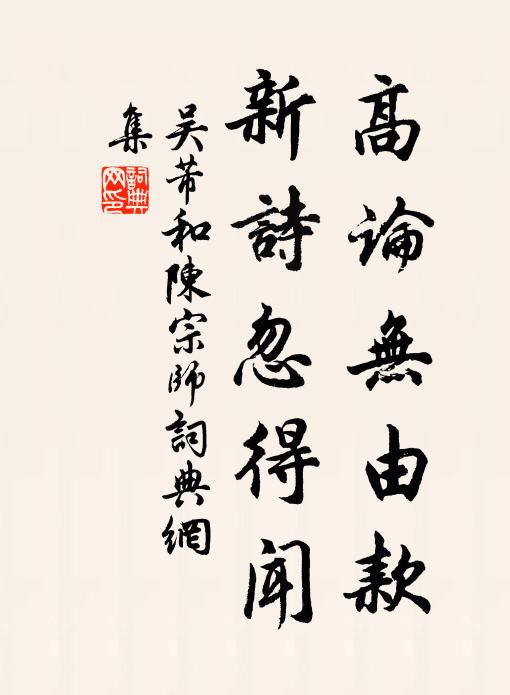 高論無由款
新詩忽得聞
吴芾和陳宗師詞典網
集
詞典
网印